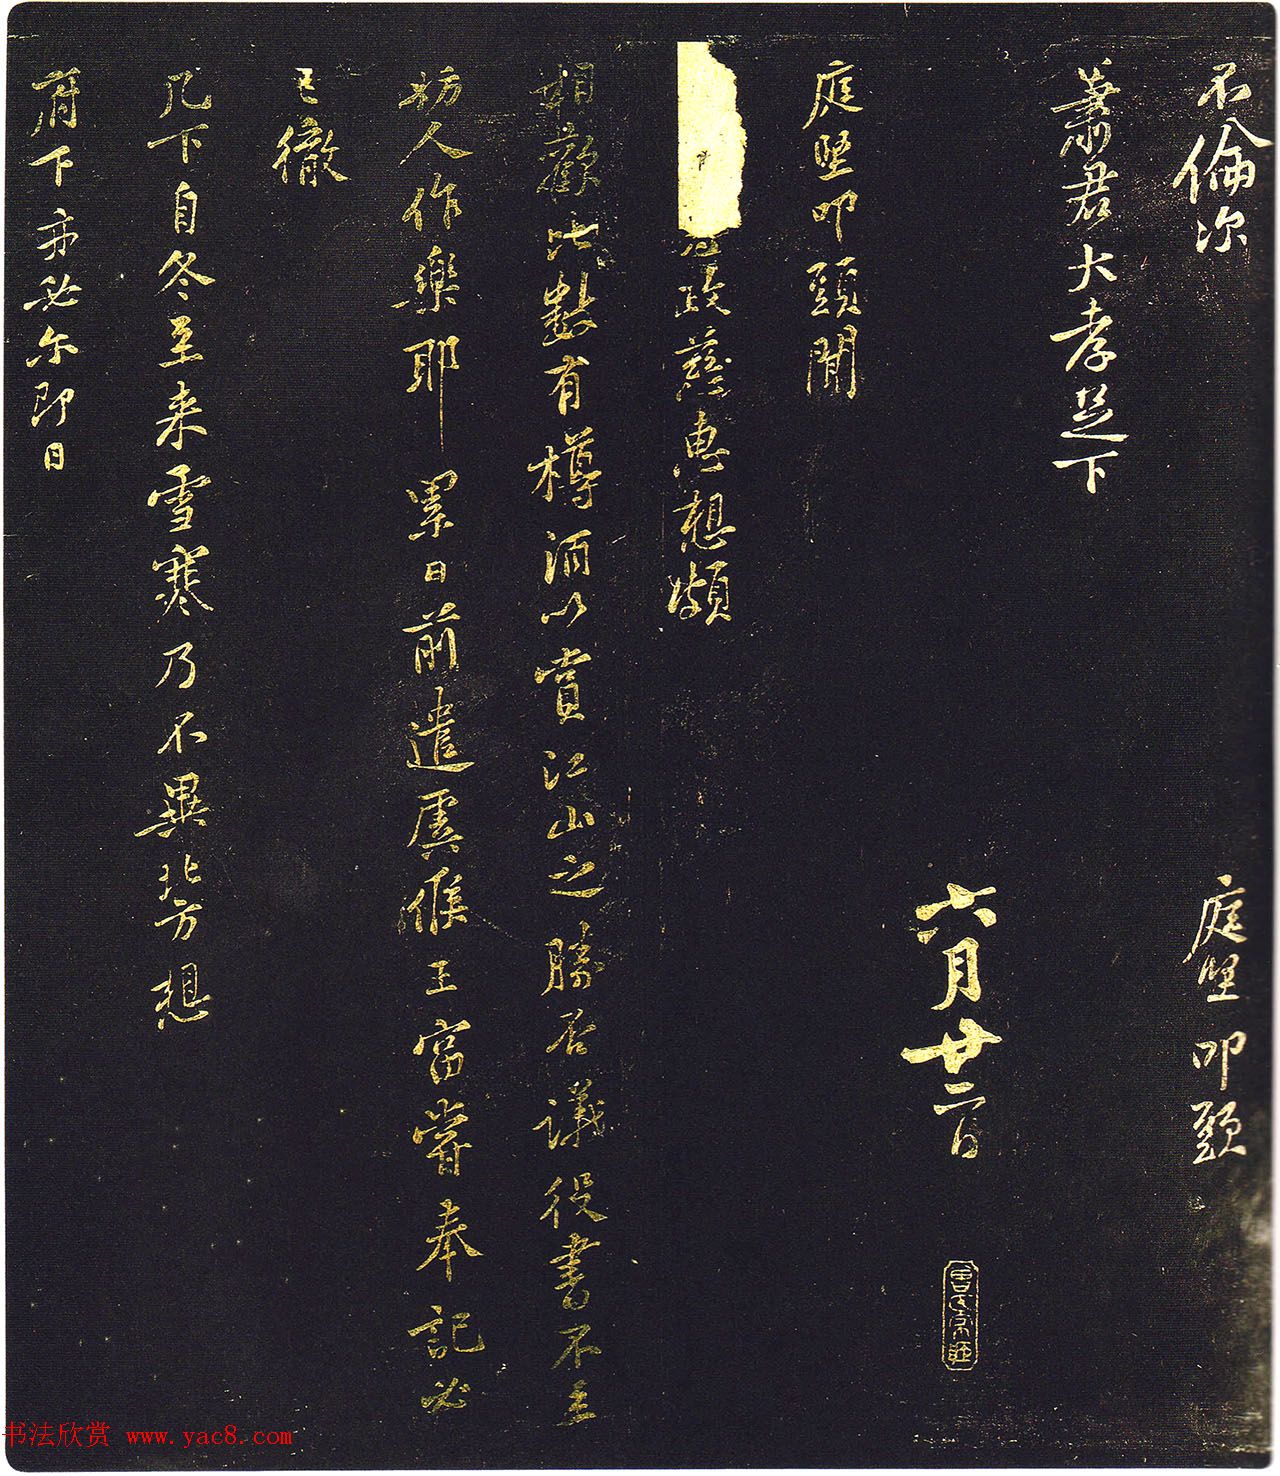 不倫次 庭堅叩頭
蕭君大孝足下
六月廿二日
庭堅叩頭聞
政慈惠想頗
相歡比數有樽酒以賞江山之勝否議役書不至
妨人作樂耶累日前遣虞候王富嘗奉記必
已徹
几下自冬至来雪寒乃不異北方想
府下亦必尔即日
书法欣赏 www.yac8.com